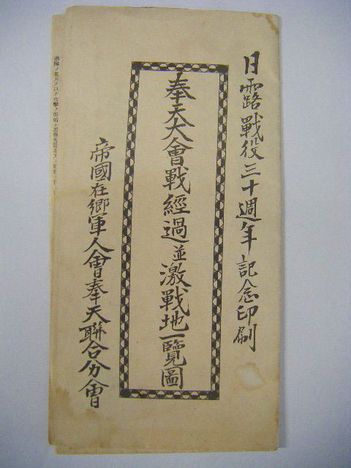 日露戰役三十週年記念印刷
奉天大會戰經過並激戰地一覽圖
帝國在鄉軍人會奉天聯合分會